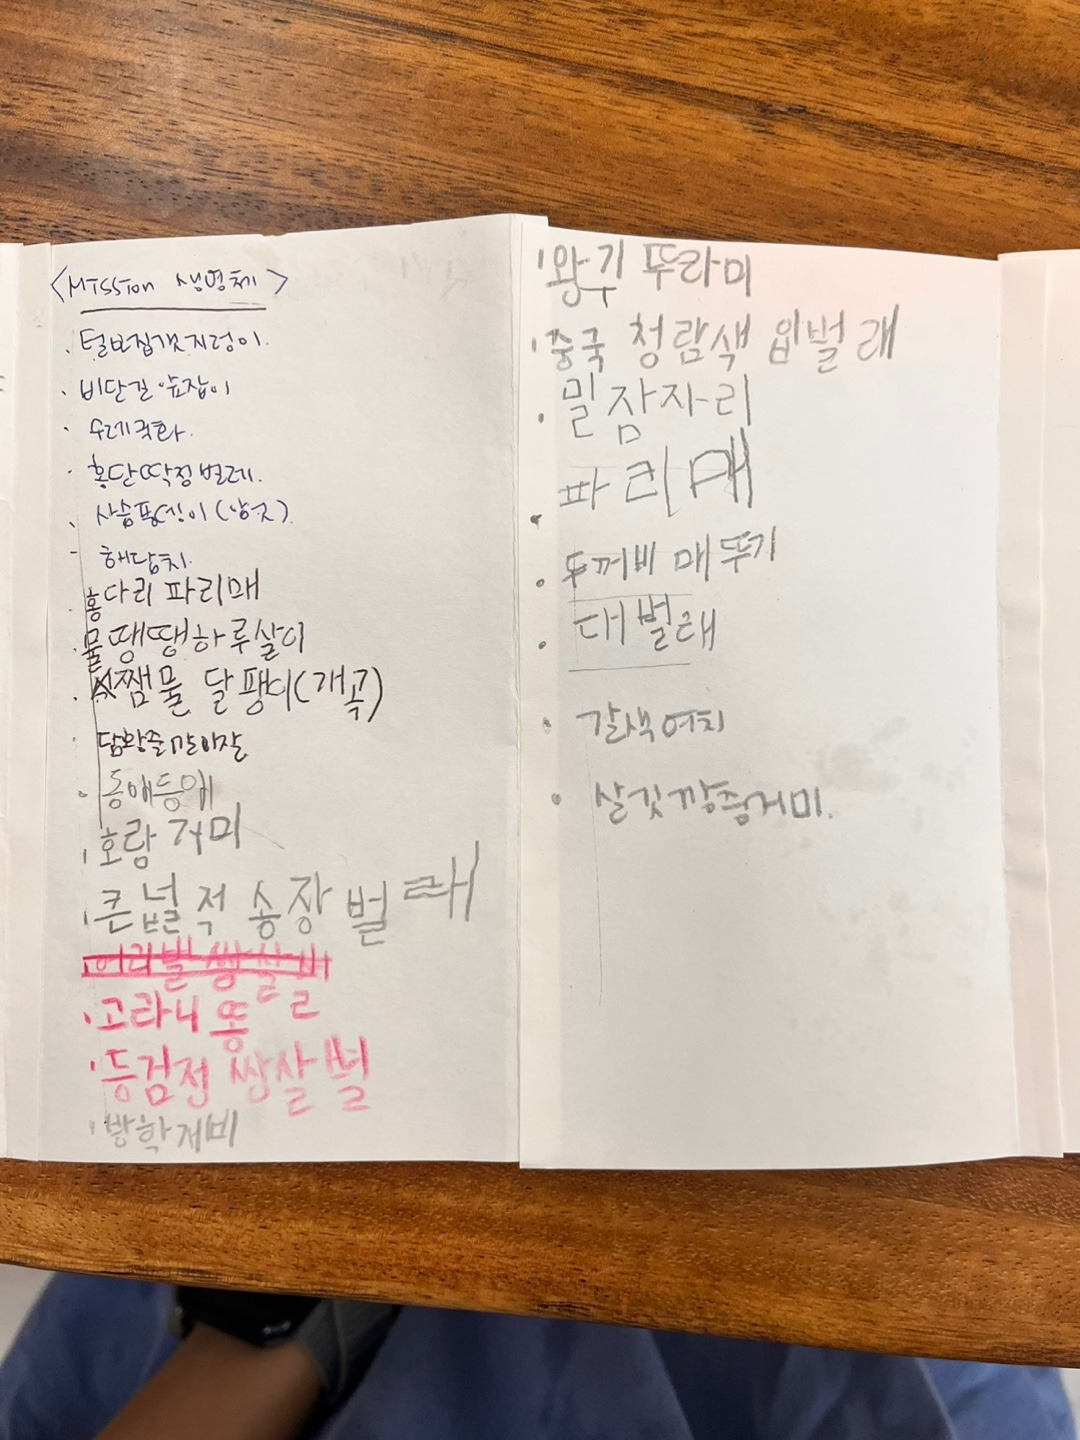 <Mission 생명체>
· 털보집갯지렁이.
· 비단길앞잡이
· 수레국화.
· 홍단딱정벌레.
· 사슴풍뎅이(암컷).
- 해답치.
홍다리 파리매
물땡땡하루살이
· 쨈물 달팽이(개곡)
· 담황줄말이잘
· 동애등에
· 호랑 거미
· 큰넓적 송장 벌래
· 고라니 똥
· 등검정 쌍살벌
· 방학거비
· 왕귀뚜라미
· 중국 청람색 잎벌래
· 밀잠자리
· 파리매
· 두꺼비 매뚜기
· 대벌래
· 갈색여치
· 살깃깡충거미.